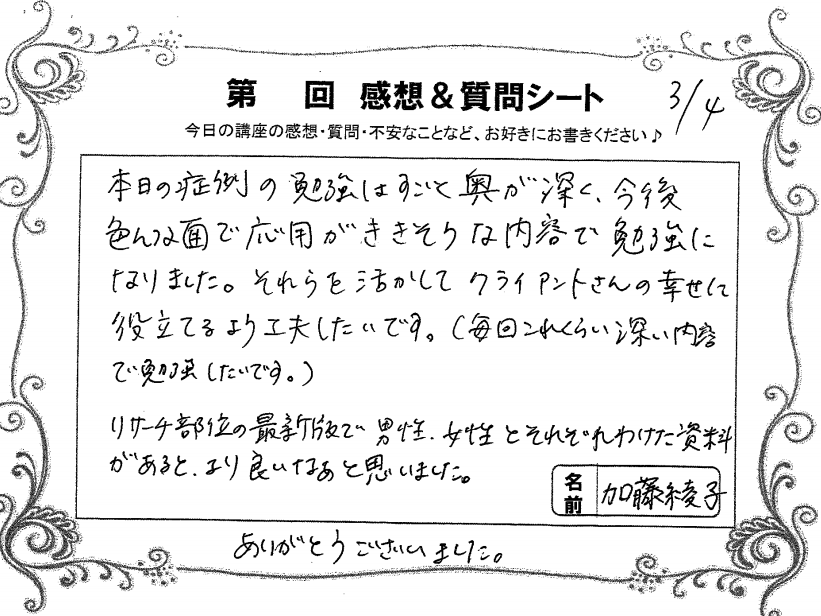 第　回 感想＆質問シート 3/4
今日の講座の感想・質問・不安なことなど、お好きにお書きください♪
本日の症例の勉強はすごく奥が深く、今後
色んな面で応用がききそうな内容で勉強に
なりました。それらを活かしてクライアントさんの幸せに
役立てるよう工夫したいです。（毎回これくらい深い内容
で勉強したいです。）
リサーチ部位の最新版で男性、女性とそれぞれわけた資料
があると、より良いなあと思いました。
名前 加藤綾子
ありがとうございました。